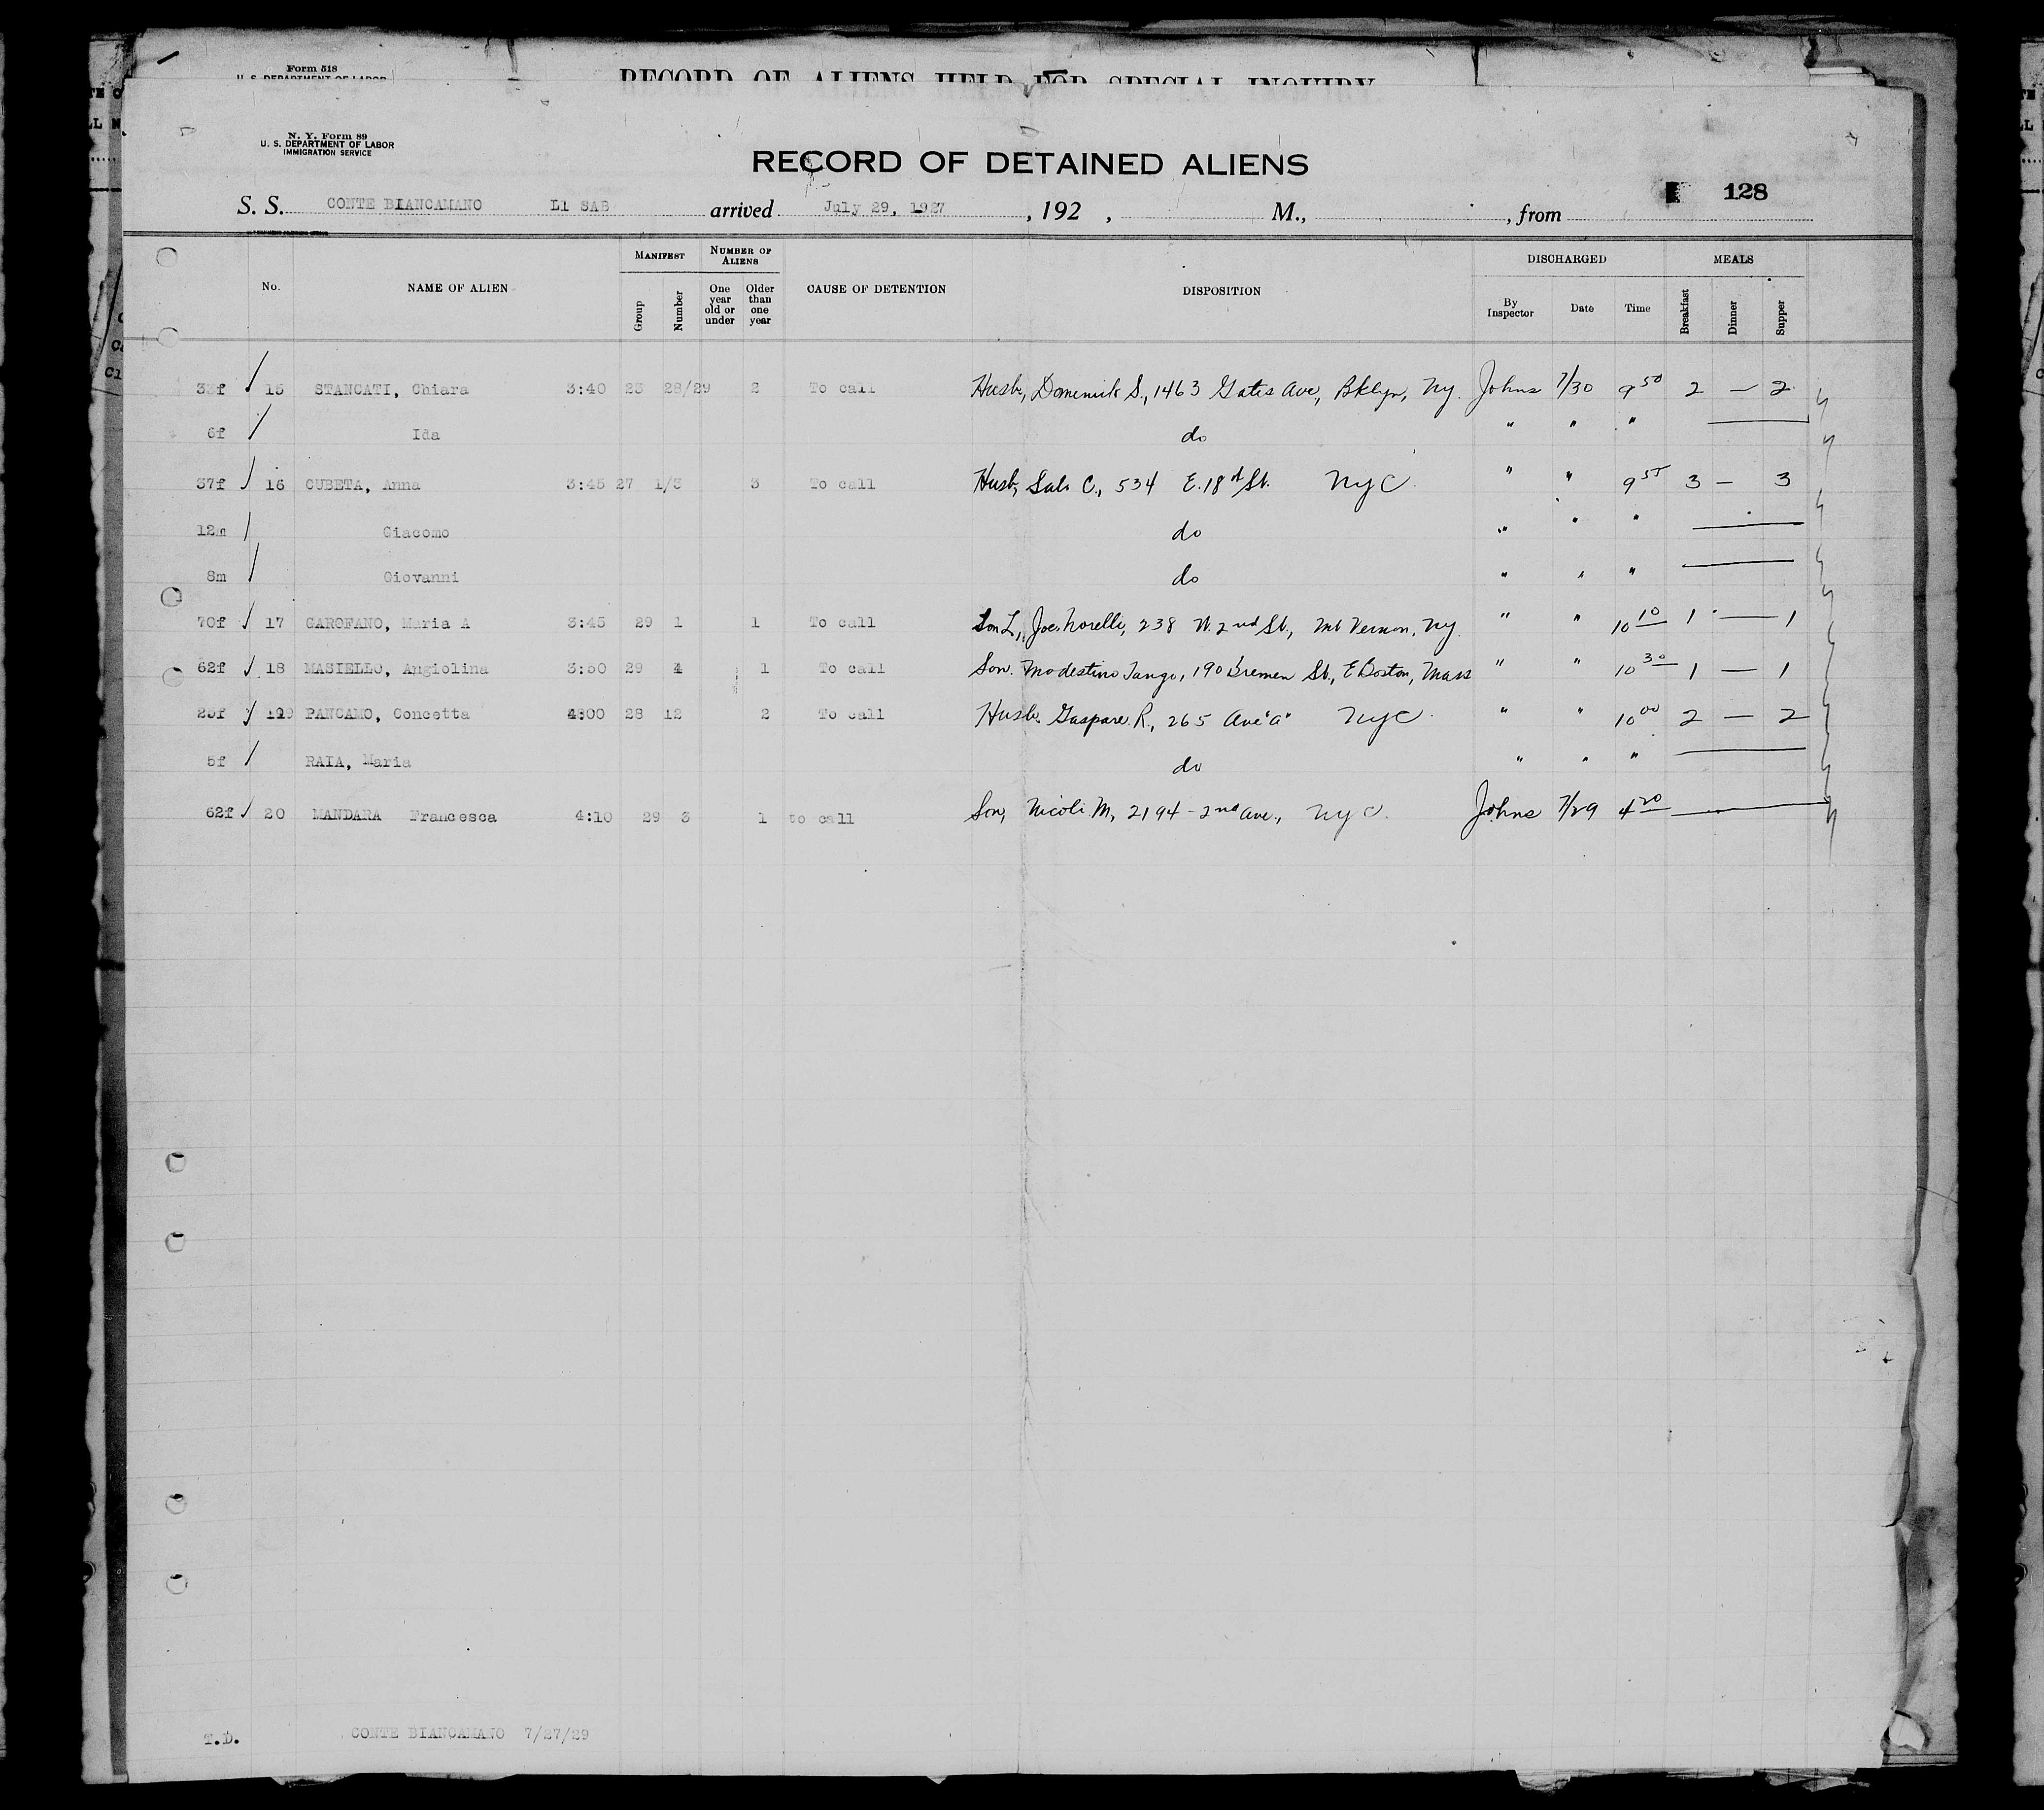 Form 518
U. S. DEPARTMENT OF LABOR
RECORD OF ALIENS HELD FOR SPECIAL INQUIRY
N. Y. Form 89
U. S. DEPARTMENT OF LABOR
IMMIGRATION SERVICE
RECORD OF DETAINED ALIENS
128
S. S. CONTE BIANCAMANO L1 SAB arrived July 29, 1927, 192 , M., , from
No. NAME OF ALIEN MANIFEST Group Number NUMBER OF ALIENS One year old or under Older than one year CAUSE OF DETENTION DISPOSITION DISCHARGED By Inspector Date Time MEALS Breakfast Dinner Supper
33f / 15 STANCATI, Chiara 3:40 23 28/29 2 To call Husb, Domenick S., 1463 Gates Ave, Bklyn, Ny. Johns 7/30 9 50 2 — 2
6f / Ida do " " "
37f / 16 CUBETA, Anna 3:45 27 1/3 3 To call Husb, Salv C., 534 E. 18th St. NYC. " " 9 55 3 — 3
12m / Giacomo do " " "
8m / Giovanni do " " "
70f / 17 GAROFANO, Maria A 3:45 29 1 1 To call Son L, Joe Norelli, 238 W. 2nd St, Mt Vernon, Ny. " " 10 10 1 — 1
62f / 18 MASIELLO, Angiolina 3:50 29 4 1 To call Son. Modestino Tango, 190 Bremen St, E Boston, Mass " " 10 30 1 — 1
/ 19 PANCAMO, Concetta 4:00 28 12 2 To call Husb. Gaspare R, 265 Ave "A" NYC. " " 10 00 2 — 2
5f / RAIA, Maria do " " "
62f / 20 MANDARA Francesca 4:10 29 3 1 to call Son, Nicoli M, 2194 - 2nd Ave, NYC. Johns 7/29 4 20
T.D. CONTE BIANCAMANO 7/27/29